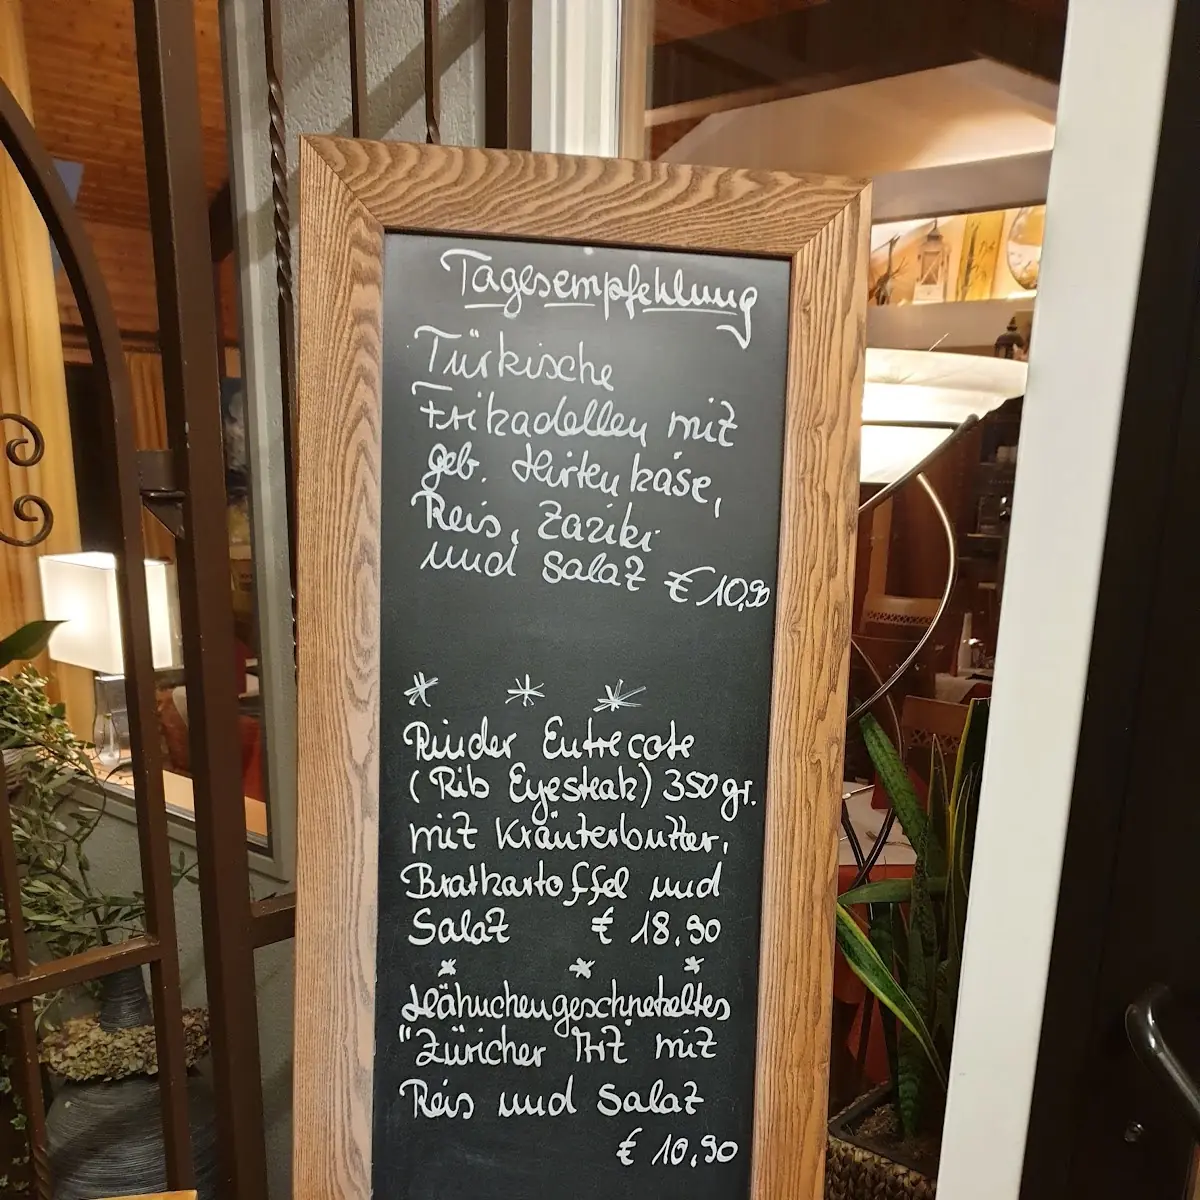 Tagesempfehlung
Türkische
Frikadellen mit
geb. Hirtenkäse,
Reis, Zaziki
und Salat € 10,90
* * *
Rinder Entrecote
(Rib Eyesteak) 350 gr.
mit Kräuterbutter,
Bratkartoffel und
Salat € 18,90
* * *
Hähnchengeschnetzeltes
"Züricher Art" mit
Reis und Salat
€ 10,90